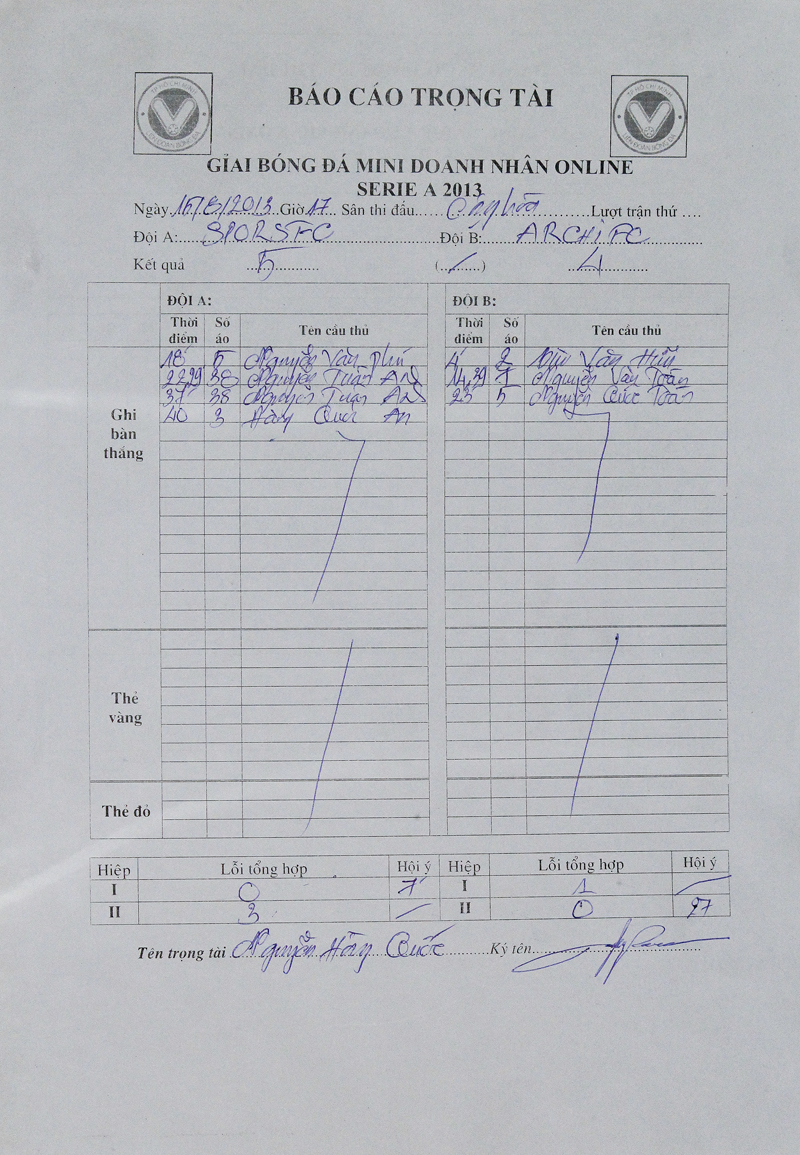 BÁO CÁO TRỌNG TÀI
GIẢI BÓNG ĐÁ MINI DOANH NHÂN ONLINE
SERIE A 2013
Ngày 16/6/2013 Giờ 17 Sân thi đấu..... Cộng hòa .........Lượt trận thứ ....
Đội A: SPORSFC Đội B: ARCHI FC
Kết quả 5 (../..) 4
ĐỘI A: ĐỘI B:
Thời điểm Số áo Tên cầu thủ Thời điểm Số áo Tên cầu thủ
Ghi bàn thắng
18' 5 Nguyễn Văn Phú 4' 2 Văn Hiếu
22,29 38 Nguyễn Tuấn Anh 14,39 7 Nguyễn Văn Toản
37' 38 Nguyễn Tuấn Anh 23' 5 Nguyễn Quốc Toản
40 3 Hàng Quốc An
Thẻ vàng
Thẻ đỏ
Hiệp Lỗi tổng hợp Hội ý Hiệp Lỗi tổng hợp Hội ý
I 0 7' I 1 /
II 3 / II 0 27
Tên trọng tài Nguyễn Hồng Quốc Ký tên